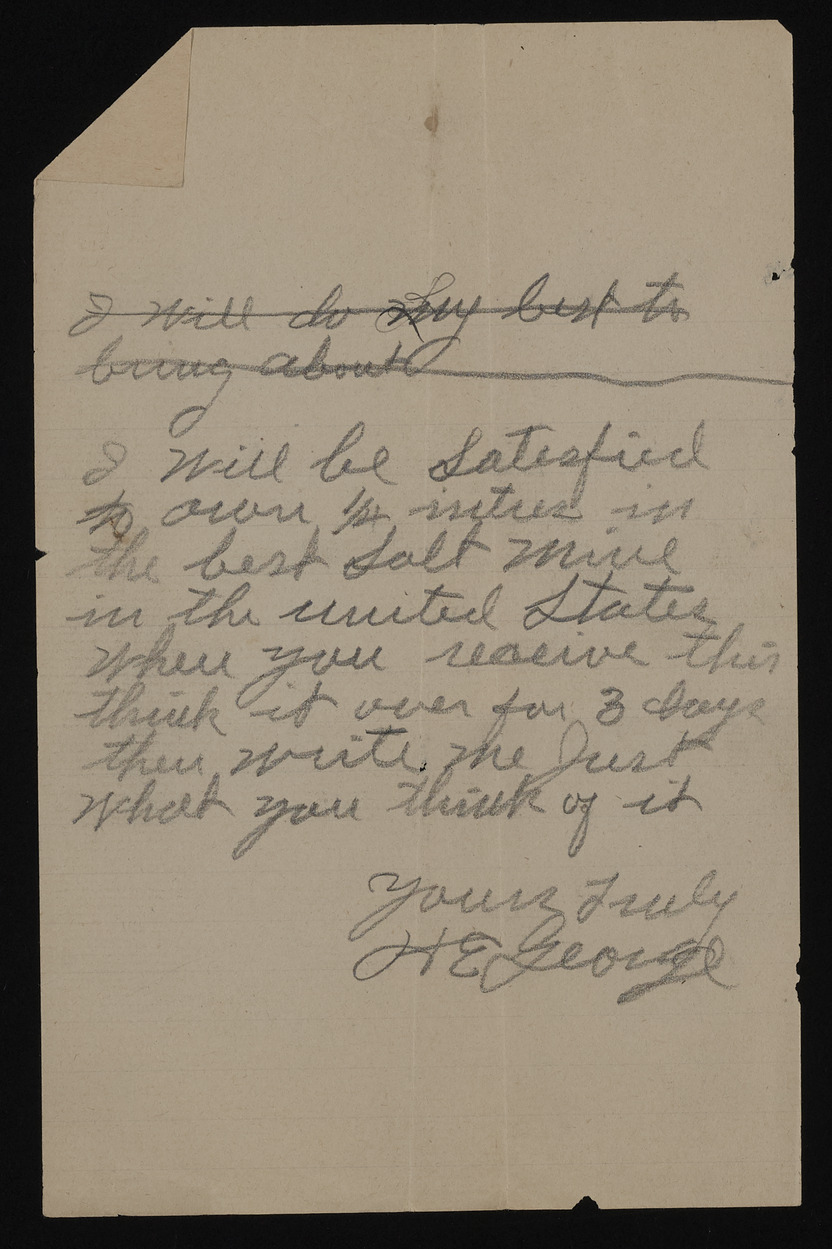 I Will do my best to
bring about
I Will be Satesfied
to own 1/2 intres in
the best Salt Mine
in the united States
When you receive this
think it over for 3 days
then write me Just
What you think of it
Yours Truly
H E George